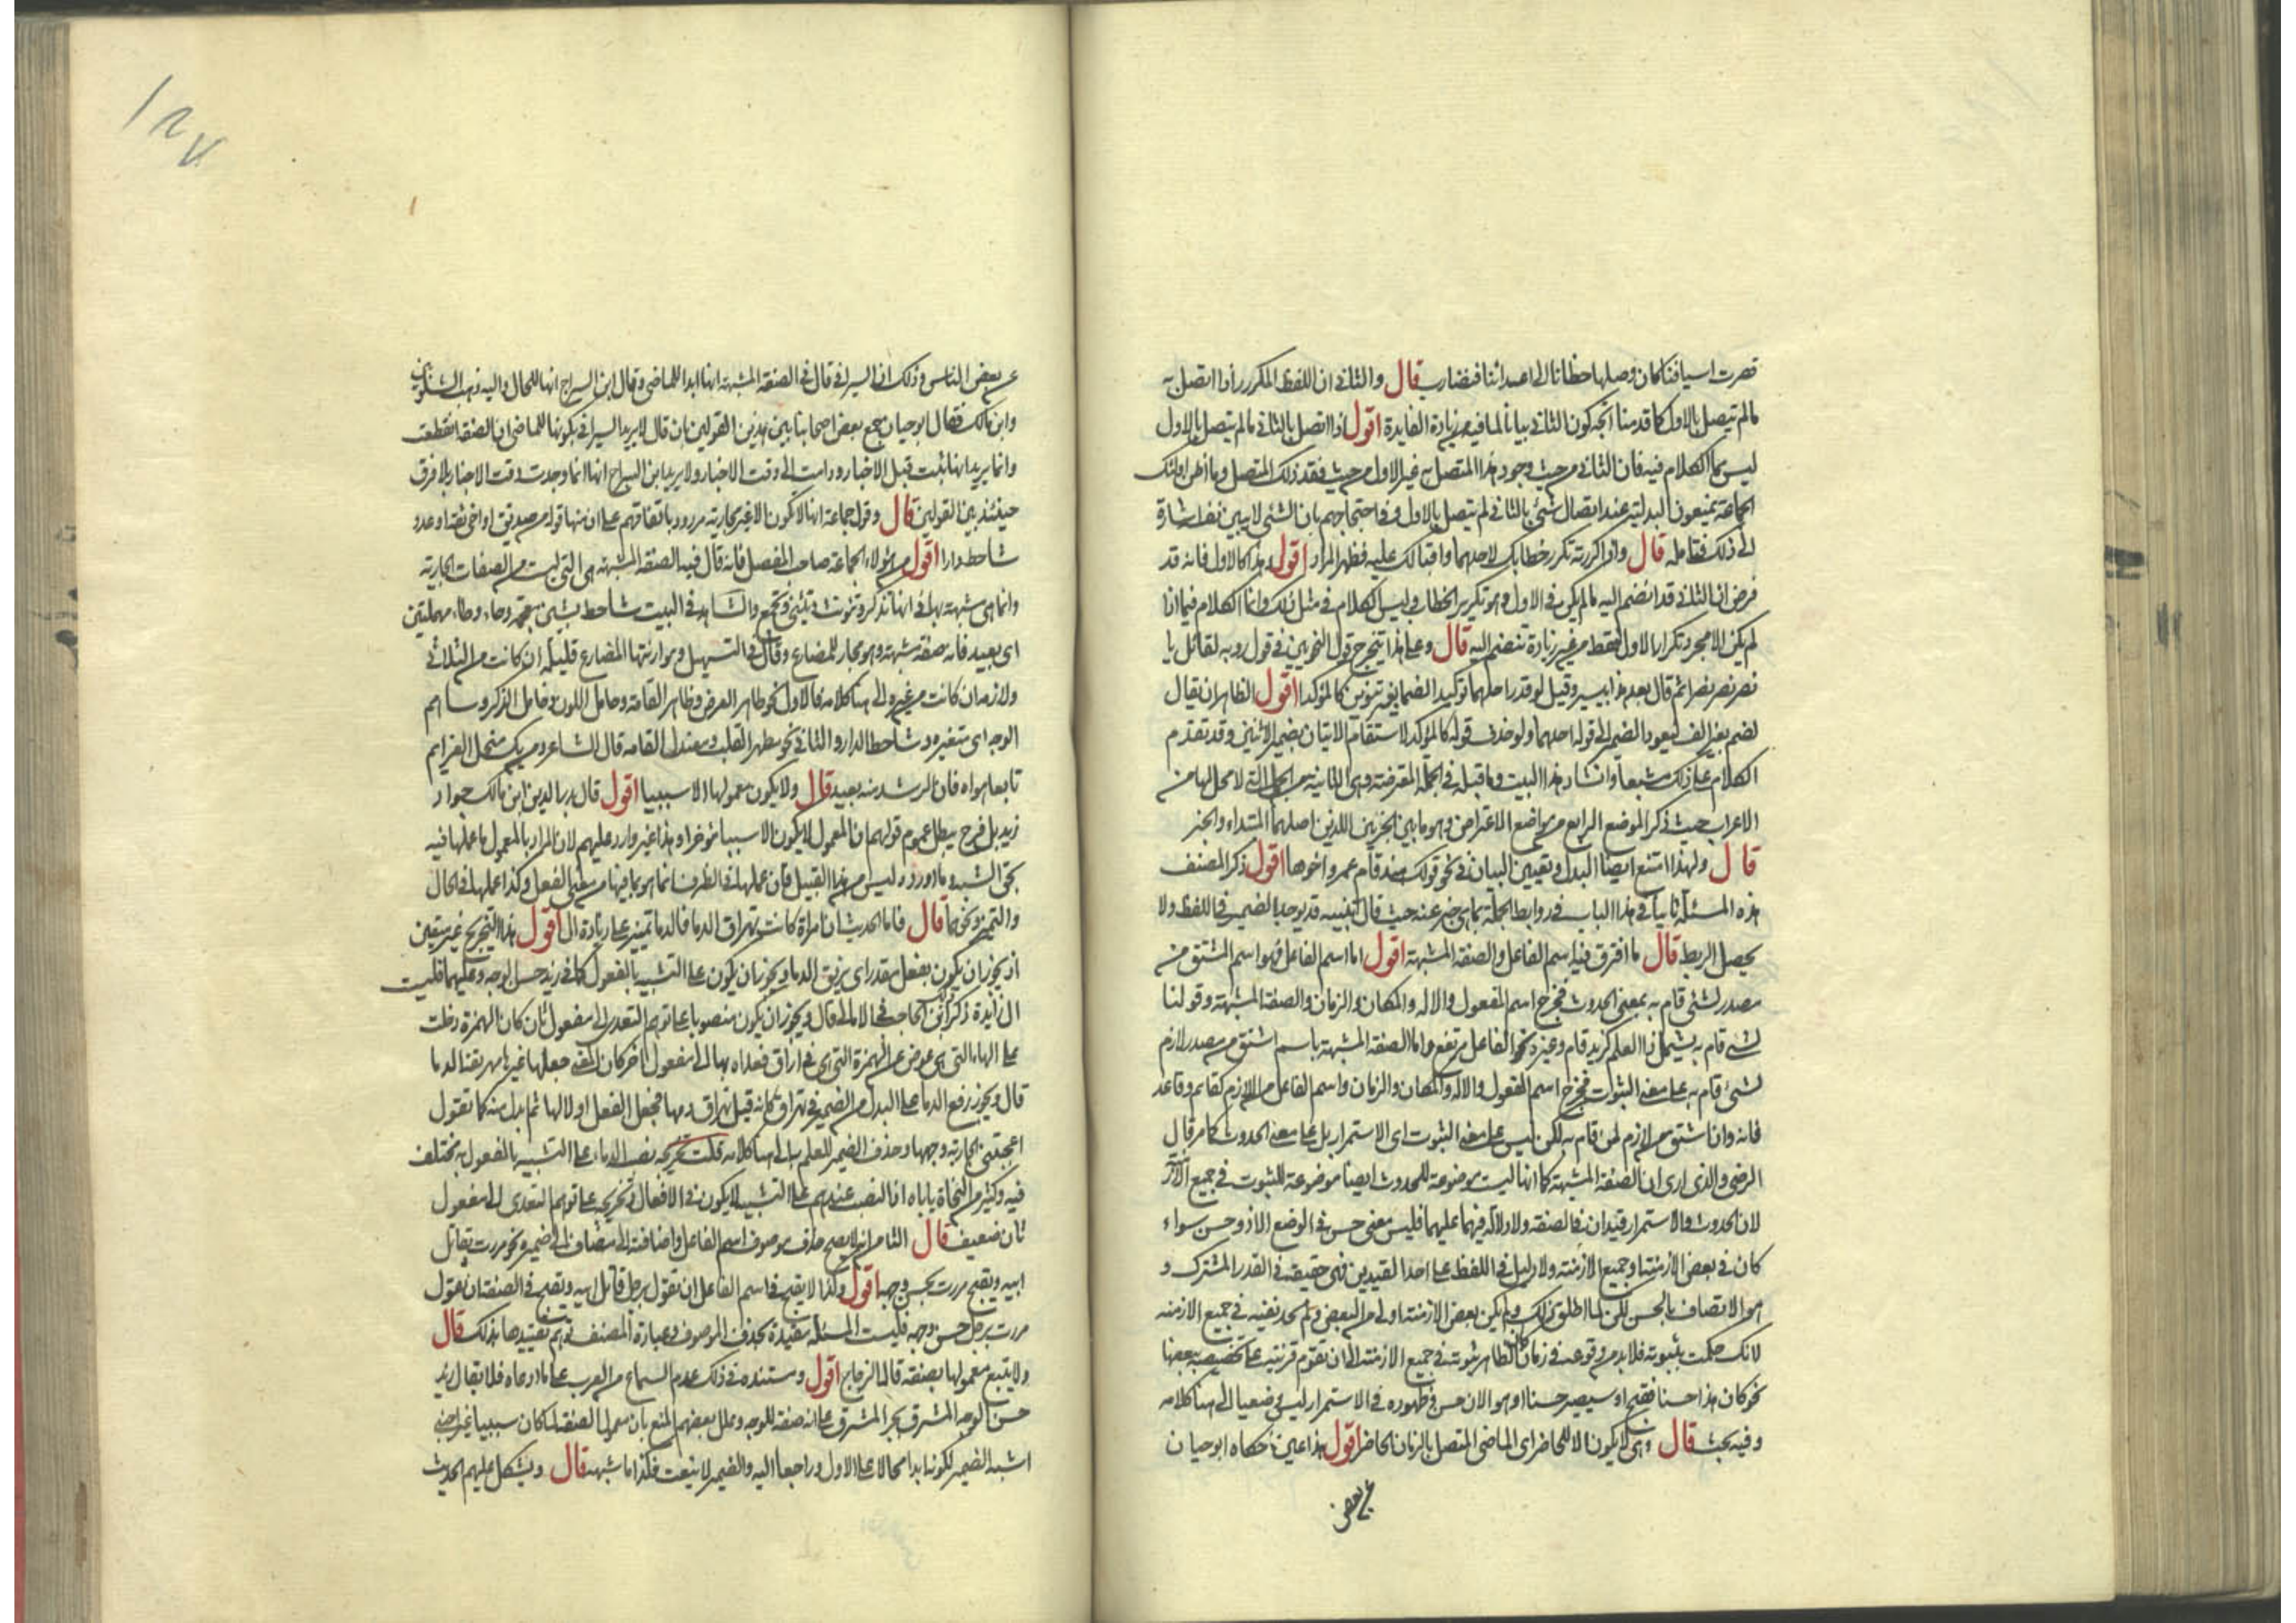 قصرت اسيافنا كان وصلها خطانا الى اعدائنا فنضارب قال والثانى ان اللفظ المكرر اذا اتصل به
مالم يتصل بالاول كما قدمنا اتجه كون الثانى بيانا لما فيه من زيادة الفايدة اقول اذا اتصل بالثانى مالم يتصل بالاول
ليس مما الكلام فيه فان الثانى من حيث وجود هذا المتصل به غير الاول من حيث فقد ذلك المتصل وما اظن اولئك
الجماعة يمنعون البدلية عند اتصال شئ بالثانى لم يتصل بالاول وفى احتجاجهم بان الشئ لا يبين نفسه اشارة
الى ذلك فتامله قال واذا كررته تكرر خطابك لاحدهما واقبالك عليه فظهر المراد اقول هذا كالاول فانه قد
فرض ان الثانى قد انضم اليه مالم يكن فى الاول وهو تكرير الخطاب وليس الكلام فى مثل ذلك وانما الكلام فيما اذا
لم يكن الا مجرد تكرار الاول فقط من غير زيادة تنضم اليه قال وعلى هذا يتخرج قول النحويين فى قول روبه لقائل يا
نصر نصر نصرا ثم قال بعد هذا بيسير وقيل لو قدر احدهما توكيدا لضما بغير تنوين كالمؤكد اقول الظاهر ان يقال
لضم بغير الف ليعود الضمير الى قوله احدهما ولو حذف قوله كالمؤكد لاستقام الاتيان بضمير الاثنين وقد تقدم
الكلام على ذلك مشبعا وانشاد هذا البيت وما قبله فى الجملة المعترضة وهى الثانية من الجمل التى لا محل لها من
الاعراب حيث ذكر الموضع الرابع من مواضع الاعتراض وهو ما بين الجزئين اللذين اصلهما المبتداء والخبر
قال ولهذا امتنع ايضا البدل وتعيين البيان فى نحو قولك هند قام عمرو اخوها اقول ذكر المصنف
هذه المسئلة ثانيا فى هذا الباب فى روابط الجملة بما هى خبر عنه حيث قال تنبيه قد يوجد الضمير فى اللفظ ولا
يحصل الربط قال ما افترق فيه اسم الفاعل والصفة المشبهة اقول اما اسم الفاعل فهو اسم المشتق من
مصدر لشئ قام به بمعنى الحدوث فخرج اسم المفعول والاله والمكان والزمان والصفة المشبهة وقولنا
لشئ قام به يشمل ذا العلم كزيد قام وغيره نحو الفاعل مرتفع واما الصفة المشبهة باسم اشتق من مصدر لازم
لشئ قام به على معنى الثبوت فخرج اسم المفعول والاله والمكان والزمان واسم الفاعل من اللازم كقايم وقاعد
فانه وان اشتق من لازم لمن قام به لكن ليس على معنى الثبوت اى الاستمرار بل على معنى الحدوث كما مر قال
الرضى والذى ارى ان الصفة المشبهة كما انها ليست موضوعة للحدوث ايضا موضوعة للثبوت فى جميع الازمنة
لان الحدوث والاستمرار قيدان فى الصفة ولا دلالة فيها عليهما فليس معنى حسن فى الوضع الا ذو حسن سواء
كان فى بعض الازمنة او جميع الازمنة ولا دليل فى اللفظ على احد القيدين فهى حقيقة فى القدر المشترك و
هو الاتصاف بالحسن لكن لما اطلق ذلك ولم يكن بعض الازمنة اولى من البعض ولم يجز نفيه فى جميع الازمنه
لانك حكمت بثبوته فلا بد من وقوعه فى زمان كان الظاهر ثبوته فى جميع الازمنة الى ان تقوم قرينة على تخصيصه ببعضها
نحو كان هذا حسنا فقبح او سيصير حسنا او هو الان حسن فظهوره فى الاستمرار ليس وضعيا الى هنا كلامه
وفيه بحث قال وهى لا يكون الا للحاضر اى الماضى المتصل بالزمان الحاضر اقول هذا عين ما حكاه ابو حيان
عن بعض
عن بعض الناس وذلك ان السيرافى قال فى الصفة المشبهة انها ابدا للماضى وقال ابن السراج انها للحال واليه ذهب الشلوبين
وابن مالك فقال ابو حيان جمع بعض اصحابنا بين هذين القولين بان قال لا يريد السيرافى بكونها للماضى ان الصفة انقطعت
وانما يريد انها ثبتت قبل الاخبار ودامت الى وقت الاخبار ولا يريد ابن السراج انها انما وجدت وقت الاخبار فلا فرق
حينئذ بين القولين قال وقول جماعة انها لا تكون الا غير مجارية مردود باتفاقهم على ان منها قوله من صديق او اخى ثقة او عدو
شاحط دارا اقول من هؤلاء الجماعة صاحب المفصل فانه قال فيه الصفة المشبهة هى التى ليست من الصفات الجارية
وانما هى مشبهة بها فى انها تذكر وتونث وتثنى وتجمع والشاهد فى البيت شاحط بشين معجمة وحاء وطاء مهملتين
اى بعيد فانه صفة مشبهة وهو مجار للمضارع وقال فى التسهيل وموازنتها المضارع قليلة ان كانت من الثلاثى
ولازمة ان كانت من غيره الى هنا كلامه فالاول نحو طاهر العرض وظاهر القامة وحامل اللون وخامل الذكر وساهم
الوجه اى متغيره وشاحط الدار والثانى نحو مطهر القلب ومعتدل القامه قال الشاعر ومن يك منحل العزايم
تابعا هواه فان الرشد منه بعيد قال ولا يكون معمولها الا سببيا اقول قال بدر الدين ابن مالك جواز
زيد بك فرح يبطل عموم قولهم ان المعمول لا يكون الا سببيا مؤخرا وهذا غير وارد عليهم لان المراد بالمعمول ما عملها فيه
بحق الشبه وما اورده ليس من هذا القبيل فان عملها فى الظرف انما هو بما فيها من معنى الفعل وكذا عملها فى الحال
والتمييز ونحوهما قال فاما الحديث ان امراة كانت تهراق الدما فالدما تمييز على زيادة ال اقول هذا التخريج غير متعين
اذ يجوز ان يكون بفعل مقدر اى يريق الدما ويجوز ان يكون على التشبيه بالمفعول كما فى زيد حسن الوجه وعليهما فليست
ال زايدة ذكر ابن الحاجب فى الامالى قال ويجوز ان يكون منصوبا على توهم التعدى الى مفعول ثان كان الهمزة دخلت
على الهاء التى هى عوض عن الهمزة التى هى فى اراق فعداه بها الى مفعول اخر كان المعنى جعلها غيرها مهريقة الدما
قال ويجوز رفع الدماء على البدل من الضمير فى تهراق كانه قيل تهراق دمها فجعل الفعل اولا لها ثم ابدل منه كما تقول
اعجبتنى الجارية وجهها وحذف الضمير للعلم به الى هنا كلامه قلت تخريجه نصب الدماء على التشبيه بالمفعول به مختلف
فيه وكثير من النحاة ياباه اذ النصب عندهم على التشبيه لا يكون فى الافعال وتخريجه على توهم التعدى الى مفعول
ثان ضعيف قال الثامن انه لا يصح حذف موصوف اسم الفاعل واضافته الى مضاف الى ضميره نحو مررت بقاتل
ابيه ويقبح مررت بحسن وجهه اقول وكذا لا يقبح فى اسم الفاعل ان تقول برجل قاتل ابيه ويقبح فى الصفة ان تقول
مررت برجل حسن وجهه فليست المسئلة مقيدة بحذف الموصوف وعبارة المصنف توهم تقييدها بذلك قال
ولا يتبع معمولها بصفة قاله الزجاج اقول ومستنده فى ذلك عدم السماع من العرب على ما ادعاه فلا يقال زيد
حسن الوجه المشرق بجر المشرق على انه صفة للوجه وعلل بعضهم المنع بان معمول الصفة لما كان سببيا غير اجنبى
اشبه الضمير لكونه ابدا محالا على الاول وراجعا اليه والضمير لا ينعت فكذا ما شبهه قال ويشكل عليهم الحديث